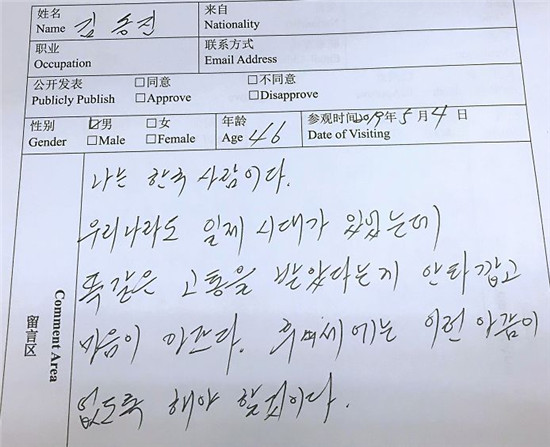 姓名 Name 김송진 来自 Nationality
职业 Occupation 联系方式 Email Address
公开发表 Publicly Publish □同意 □Approve □不同意 □Disapprove
性别 Gender ☑男 □Male □女 □Female 年龄 Age 46 参观时间 2019年5月4日 Date of Visiting
留言区 Comment Area
나는 한국 사람이다.
우리나라도 일제 시대가 있었는데
똑같은 고통을 받았다는게 안타깝고
마음이 아프다. 후세에는 이런 아픔이
없도록 해야 할것이다.